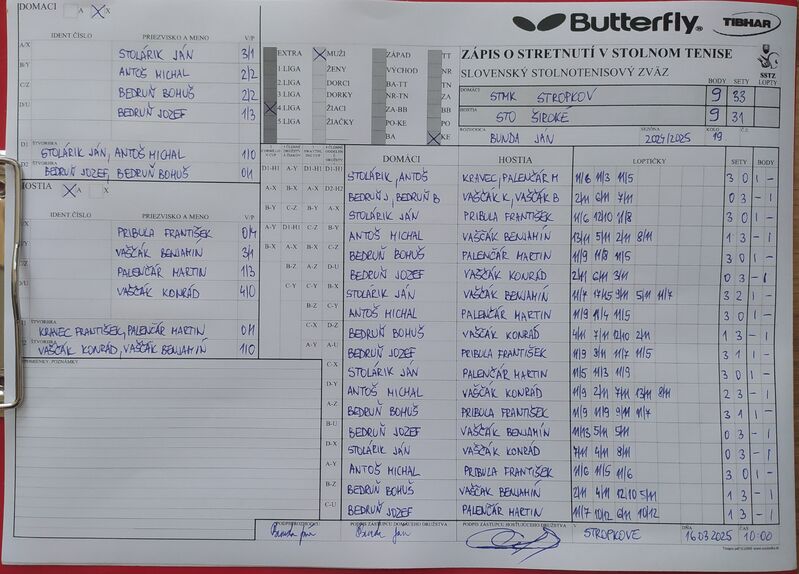 DOMÁCI A X
Butterfly
TIBHAR
IDENT ČÍSLO PRIEZVISKO A MENO V/P
A/X STOLÁRIK JÁN 3/1
B/Y ANTOŠ MICHAL 2/2
C/Z BEDRUŇ BOHUŠ 2/2
D/U BEDRUŇ JOZEF 1/3
D1 ŠTVORHRA
STOLÁRIK JÁN, ANTOŠ MICHAL 1/0
BEDRUŇ JOZEF, BEDRUŇ BOHUŠ 0/1
HOSTIA A X
IDENT ČÍSLO PRIEZVISKO A MENO V/P
PRIBULA FRANTIŠEK 0/4
VAŠČÁK BENJAMÍN 3/1
PALENČÁR MARTIN 1/3
VAŠČÁK KONRÁD 4/0
ŠTVORHRA
KRAVEC FRANTIŠEK, PALENČÁR MARTIN 0/1
VAŠČÁK KONRÁD, VAŠČÁK BENJAMÍN 1/0
PRIPOMIENKY, POZNÁMKY
EXTRA MUŽI ZÁPAD TT
1 LIGA ŽENY VÝCHOD NR
2 LIGA DORCI BA-TT TN
3 LIGA DORKY NR-TN ZA
4 LIGA ŽIACI ZA-BB BB
5 LIGA ŽIAČKY PO-KE PO
BA KE
ZÁPIS O STRETNUTÍ V STOLNOM TENISE
SLOVENSKÝ STOLNOTENISOVÝ ZVÄZ
SSTZ
BODY SETY LOPTY
DOMÁCI STMK STROPKOV 9 33
HOSTIA STO ŠIROKÉ 9 31
ROZHODCA BUNDA JÁN SEZÓNA 2024/2025 KOLO 19 Č.
DOMÁCI HOSTIA LOPTIČKY SETY BODY
STOLÁRIK, ANTOŠ KRAVEC, PALENČÁR M 11/6 11/3 11/5 3 0 1 -
BEDRUŇ J, BEDRUŇ B VAŠČÁK K, VAŠČÁK B 2/11 6/11 7/11 0 3 - 1
STOLÁRIK JÁN PRIBULA FRANTIŠEK 11/6 12/10 11/8 3 0 1 -
ANTOŠ MICHAL VAŠČÁK BENJAMÍN 13/11 5/11 2/11 8/11 1 3 - 1
BEDRUŇ BOHUŠ PALENČÁR MARTIN 11/9 11/8 11/5 3 0 1 -
BEDRUŇ JOZEF VAŠČÁK KONRÁD 2/11 6/11 3/11 0 3 - 1
STOLÁRIK JÁN VAŠČÁK BENJAMÍN 11/7 17/15 9/11 5/11 11/7 3 2 1 -
ANTOŠ MICHAL PALENČÁR MARTIN 11/9 11/4 11/5 3 0 1 -
BEDRUŇ BOHUŠ VAŠČÁK KONRÁD 4/11 7/11 12/10 2/11 1 3 - 1
BEDRUŇ JOZEF PRIBULA FRANTIŠEK 11/9 3/11 11/7 11/5 3 1 1 -
STOLÁRIK JÁN PALENČÁR MARTIN 11/5 11/3 11/9 3 0 1 -
ANTOŠ MICHAL VAŠČÁK KONRÁD 11/9 2/11 7/11 13/11 8/11 2 3 - 1
BEDRUŇ BOHUŠ PRIBULA FRANTIŠEK 11/9 11/9 9/11 11/7 3 1 1 -
BEDRUŇ JOZEF VAŠČÁK BENJAMÍN 11/13 5/11 5/11 0 3 - 1
STOLÁRIK JÁN VAŠČÁK KONRÁD 7/11 4/11 8/11 0 3 - 1
ANTOŠ MICHAL PRIBULA FRANTIŠEK 11/6 11/5 11/6 3 0 1 -
BEDRUŇ BOHUŠ VAŠČÁK BENJAMÍN 2/11 4/11 12/10 5/11 1 3 - 1
BEDRUŇ JOZEF PALENČÁR MARTIN 11/7 10/12 6/11 10/12 1 3 - 1
PODPIS ROZHODCU PODPIS ZÁSTUPCU DOMÁCEHO DRUŽSTVA PODPIS ZÁSTUPCU HOSŤUJÚCEHO DRUŽSTVA V STROPKOVE DŇA 16.03.2025 ČAS 10:00
Bunda Ján Bunda Ján